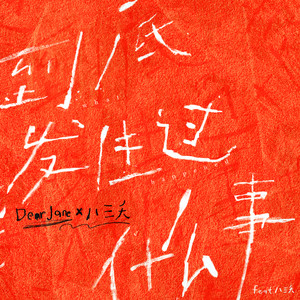 到底
发生过
Dear Jane x 八三夭
什么事
feat. 八三夭